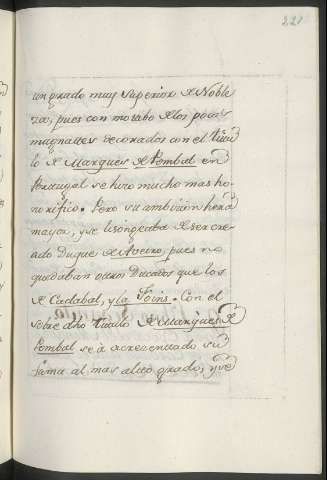 221
un grado muy superior de Noble
za, pues con motibo de los pocos
magnates decorados con el titu
lo de Marques de Pombal en
Portugal se hizo mucho mas ho
norifico. Pero su ambicion hera
mayor, y se lisongeaba de ser cre
ado Duque de Aveiro, pues no
quedaban otros Ducados que los
de Cadabal, y la Foins. Con el
sobre dho titulo de Marques de
Pombal se á acrezentado su
fama al mas alto grado, y se